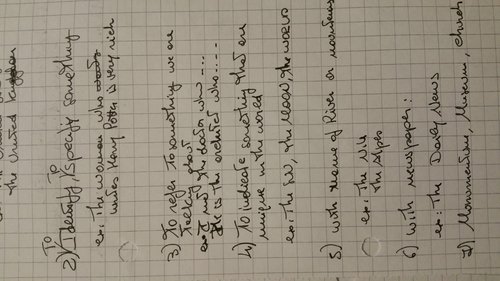 the United Kingdom
2) To Identify, To specify something
ex: The woman who
writes Harry Potter is very rich
3) To refer to something we are
talking about
ex: I met the doctor who ....
this is the architect who ....
4) To indicate something that are
unique in the world
ex: The sun, the moon, the world
5) with name of River or mountains
ex: The Nile
the Alpes
6) with newspaper:
ex: The Daily News
7) Monumentum, Museum, church